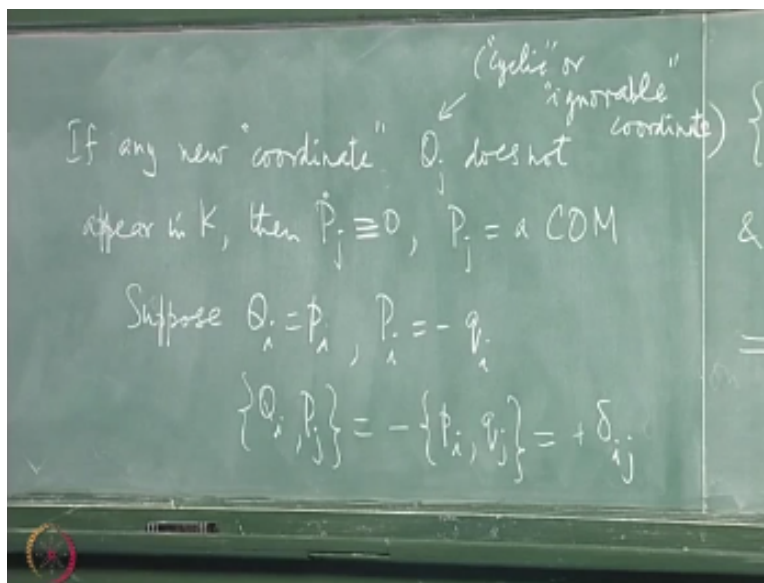 ("cyclic" or
"ignorable"
coordinate)
If any new "coordinate" Q_j does not
appear in K, then Ṗ_j ≡ 0, P_j = a COM
Suppose Q_i = p_i, P_i = - q_i
{Q_i, P_j} = - {p_i, q_j} = + δ_ij
{
&
=